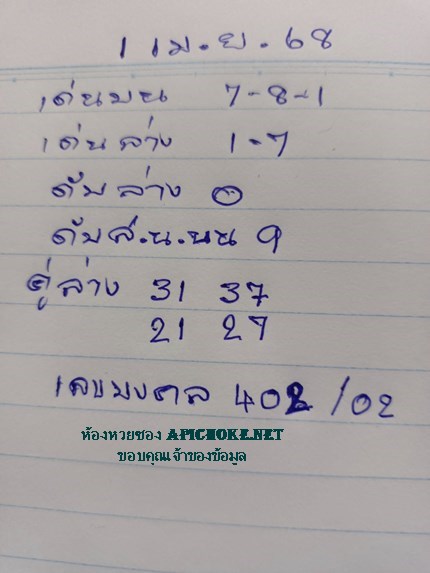 1 เม.ย.68
เด่นบน 7-8-1
เด่นล่าง 1-7
ดับล่าง 0
ดับส.น.บน 9
คู่ล่าง 31 37
21 27
เลขมงคล 402/02
ห้องหวยซอง APICHOKE.NET
ขอบคุณเจ้าของข้อมูล